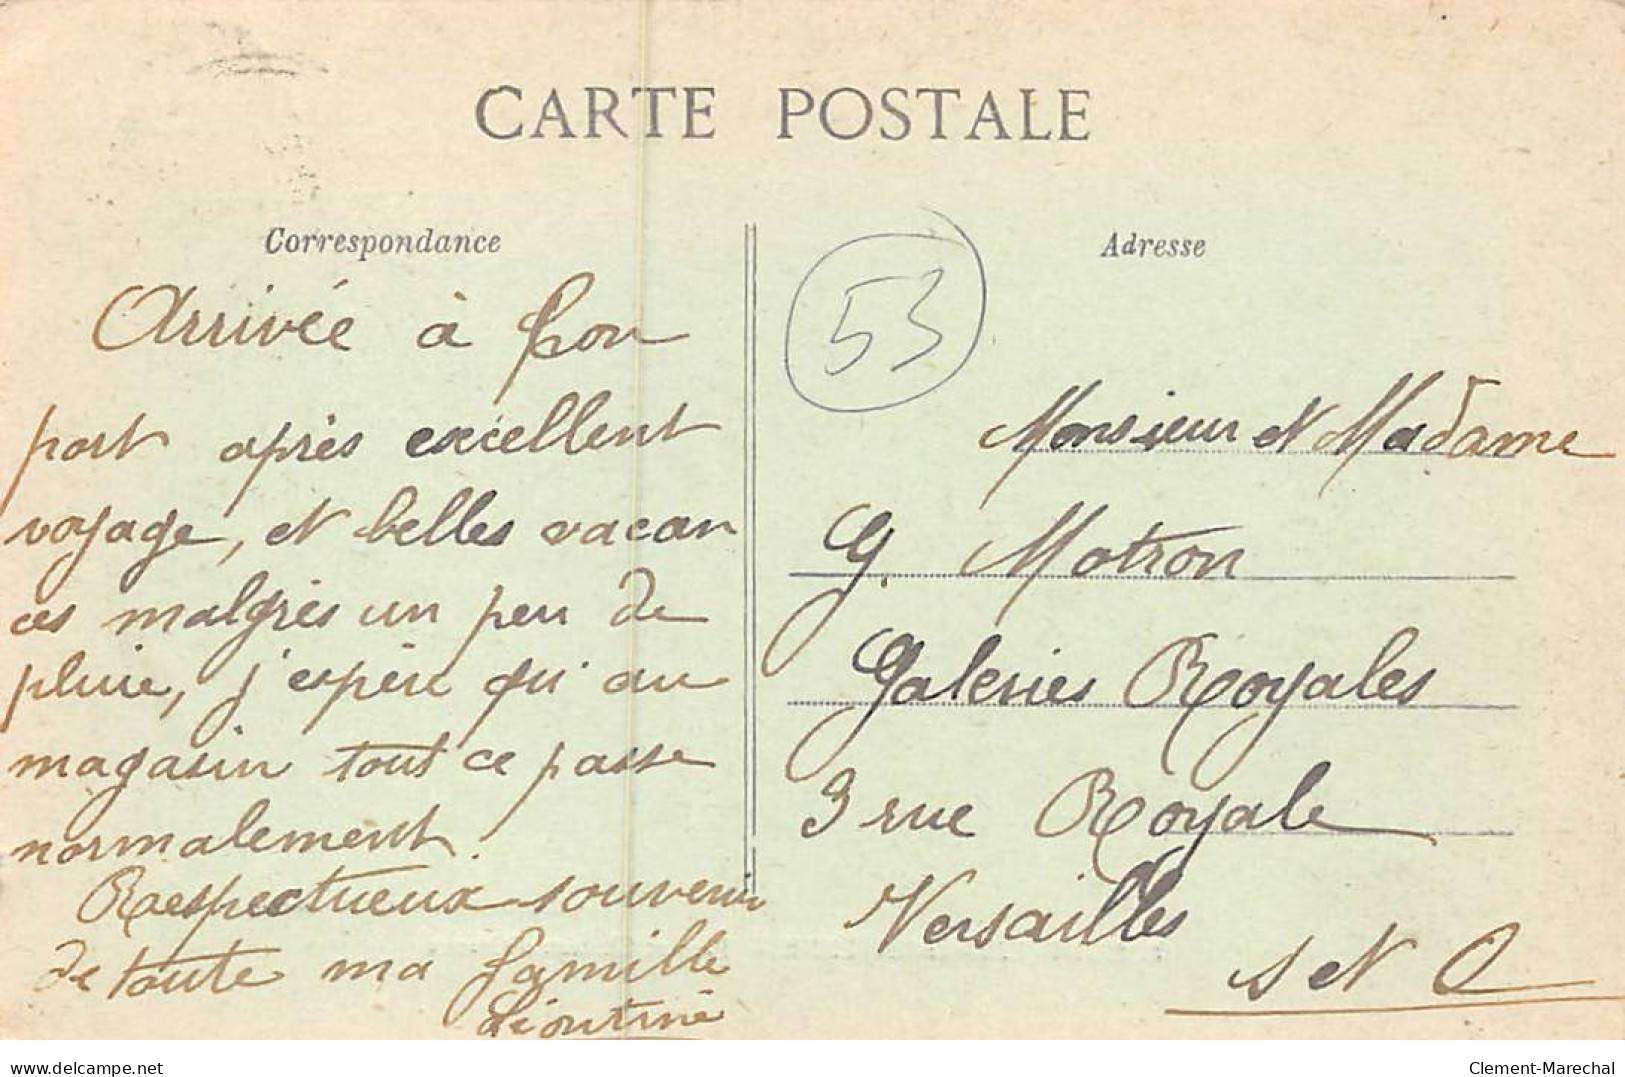 CARTE POSTALE
Correspondance
Arrivée à bon
port après excellent
voyage, et belles vacan
ces malgrès un peu de
pluie, j'espère qu'au
magasin tout ce passe
normalement.
Respectueux souvenir
de toute ma famille
Adresse
53
Monsieur et Madame
G. Motron
Galeries Royales
3 rue Royale
Versailles
S et O
delcampe.net
Clement-Marechal